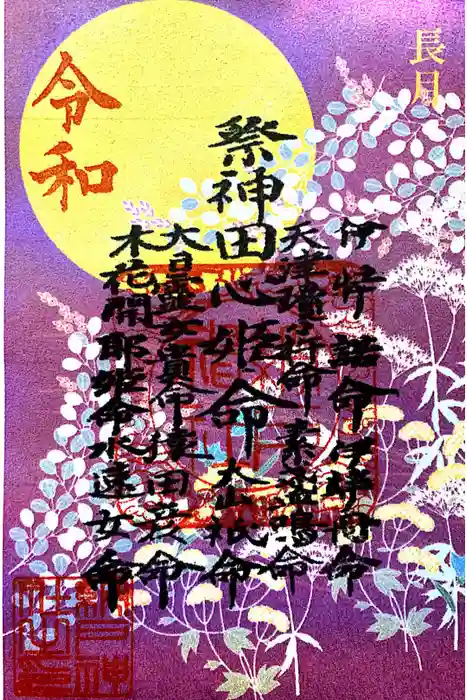 長月
伊弉諾命伊弉冉命
天津瓊々杵命素盞嗚命
祭神田心姫命大山祇命
大日孁女貴命猿田彦命
木花開耶姫命水速女命
令和